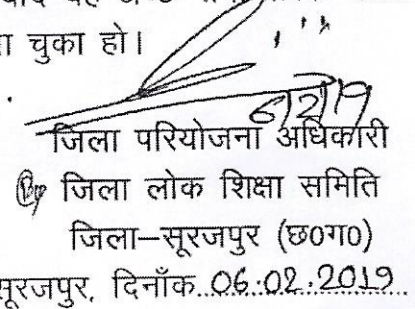 चुका हो।
6/2/19
जिला परियोजना अधिकारी
जिला लोक शिक्षा समिति
जिला–सूरजपुर (छ0ग0)
सूरजपुर, दिनाँक 06.02.2019